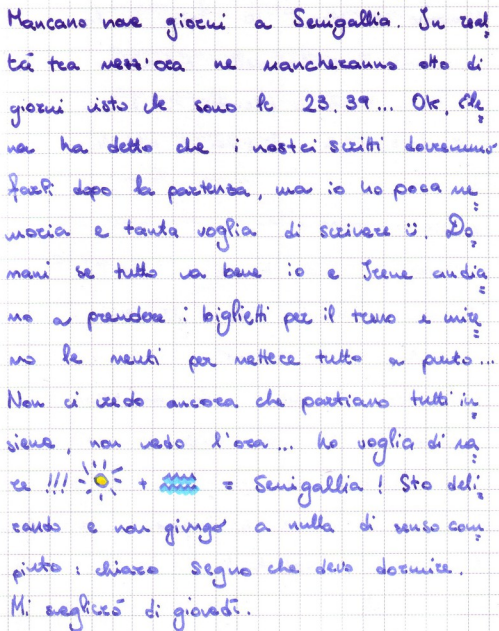 Mancano nove giorni a Senigallia. In real=
tà tra mezz'ora ne mancheranno otto di
giorni visto che sono le 23.39... Ok, Ele=
na ha detto che i nostri scritti dovremmo
farli dopo la partenza, ma io ho poca me=
moria e tanta voglia di scrivere ü. Do=
mani se tutto va bene io e Irene andia=
mo a prendere i biglietti per il treno e unire=
mo le menti per mettere tutto a punto...
Non ci credo ancora che partiamo tutti in=
sieme, non vedo l'ora... ho voglia di ma=
re !!! + = Senigallia ! Sto deli=
rando e non giungo a nulla di senso com=
piuto : chiaro segno che devo dormire.
Mi sveglierò di giovedì.